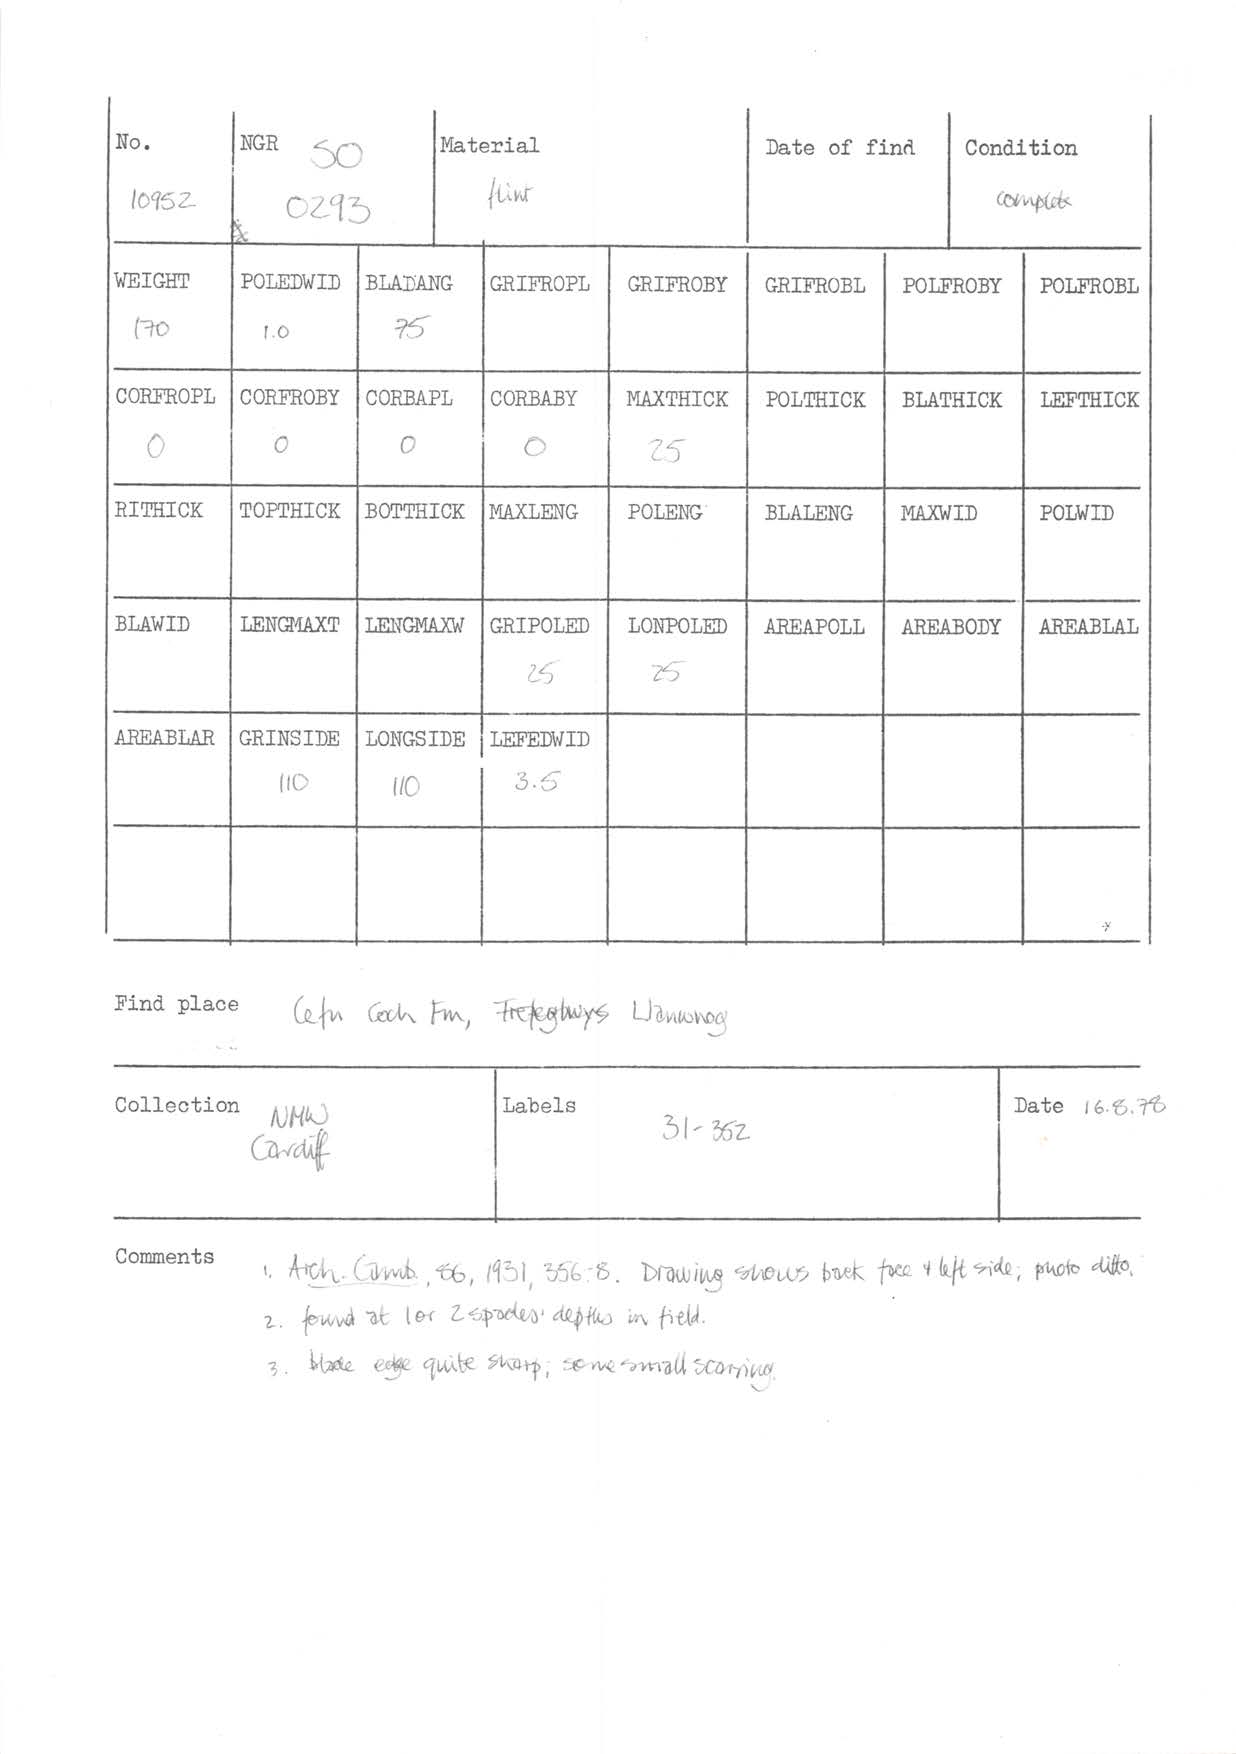 No. NGR SO Material Date of find Condition
10952 0293 flint complete
WEIGHT POLEDWID BLADANG GRIFROPL GRIFROBY GRIFROBL POLFROBY POLFROBL
170 1.0 75
CORFROPL CORFROBY CORBAPL CORBABY MAXTHICK POLTHICK BLATHICK LEFTHICK
0 0 0 0 25
RITHICK TOPTHICK BOTTHICK MAXLENG POLENG BLALENG MAXWID POLWID
BLAWID LENGMAXT LENGMAXW GRIPOLED LONPOLED AREAPOLL AREABODY AREABLAL
25 25
AREABLAR GRINSIDE LONGSIDE LEFEDWID
110 110 3.5
Find place Cefn Coch Fm, Trefeglwys Llanwnog
Collection NMW Labels 31-352 Date 16.8.78
Cardiff
Comments 1. Arch. Camb., 86, 1931, 356-8. Drawing shows back face & left side; photo ditto.
2. found at 1 or 2 spades' depths in field.
3. blade edge quite sharp; some small scarring.